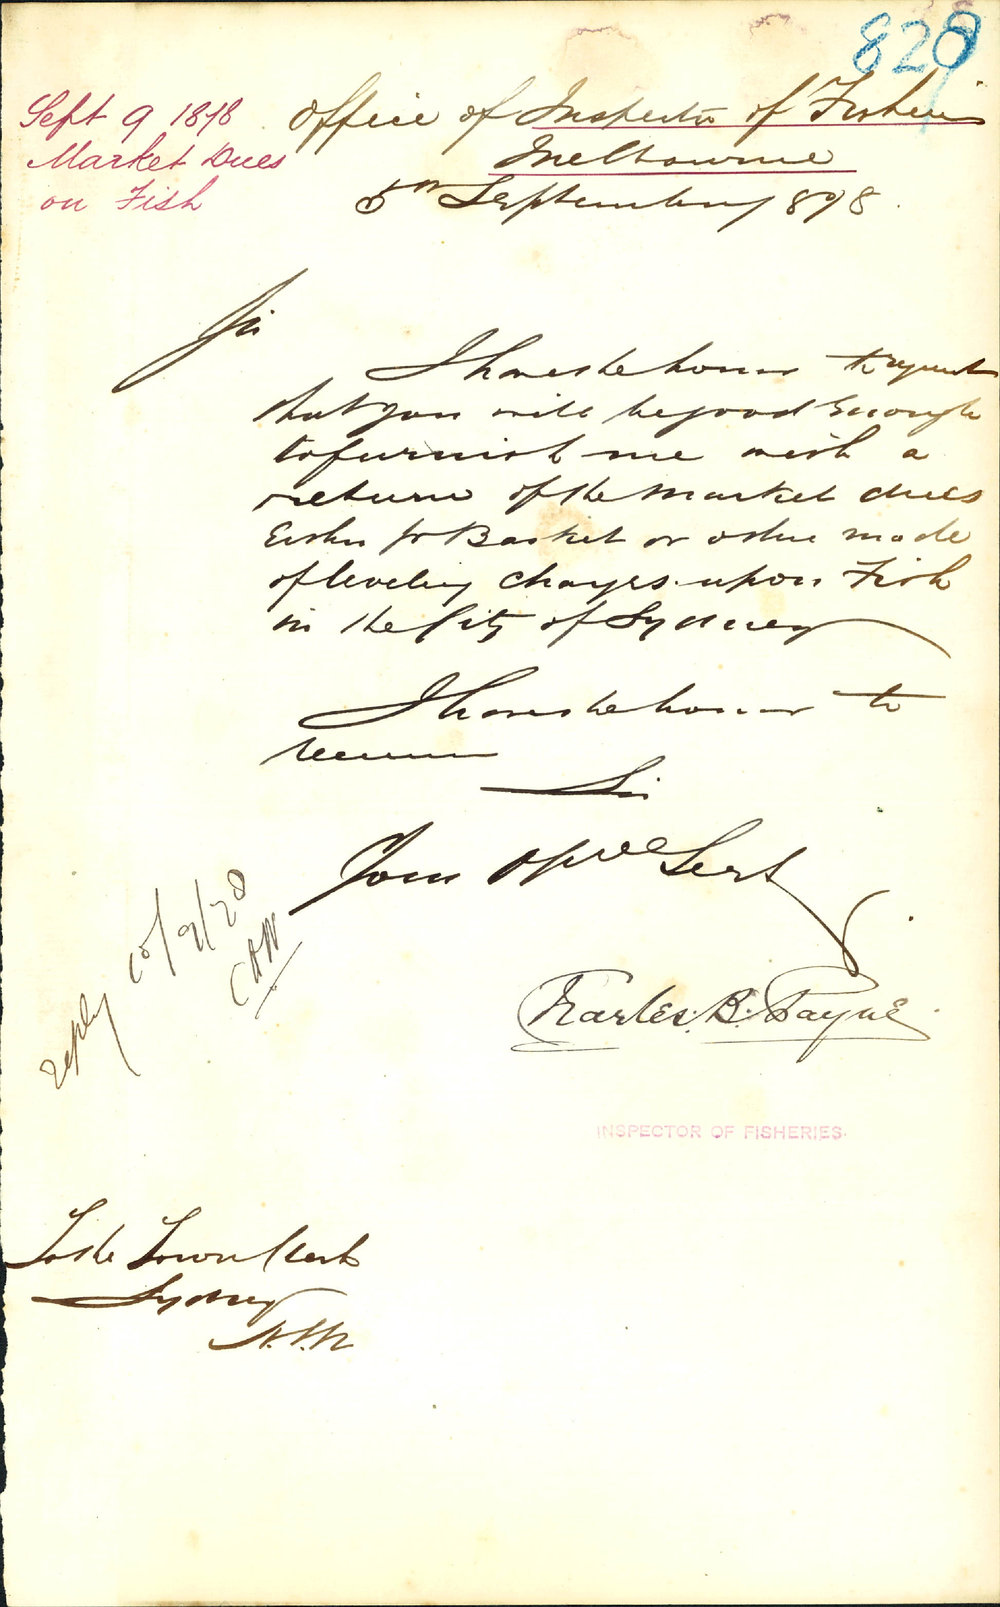 828
Sept 9 1878
Market Dues
on Fish
Office of Inspector of Fisheries
Melbourne
5th September 1878.
Sir
I have the honor to request
that you will be good Enough
to furnish me with a
return of the Market dues
Either pr Basket or other mode
of leveling charges upon Fish
in the City of Sydney
I have the honor to
remain
Sir
Your Obt Servt
Charles. B. Payne
INSPECTOR OF FISHERIES.
reply 10/9/78
To the Town Clerk
Sydney
N.S.W